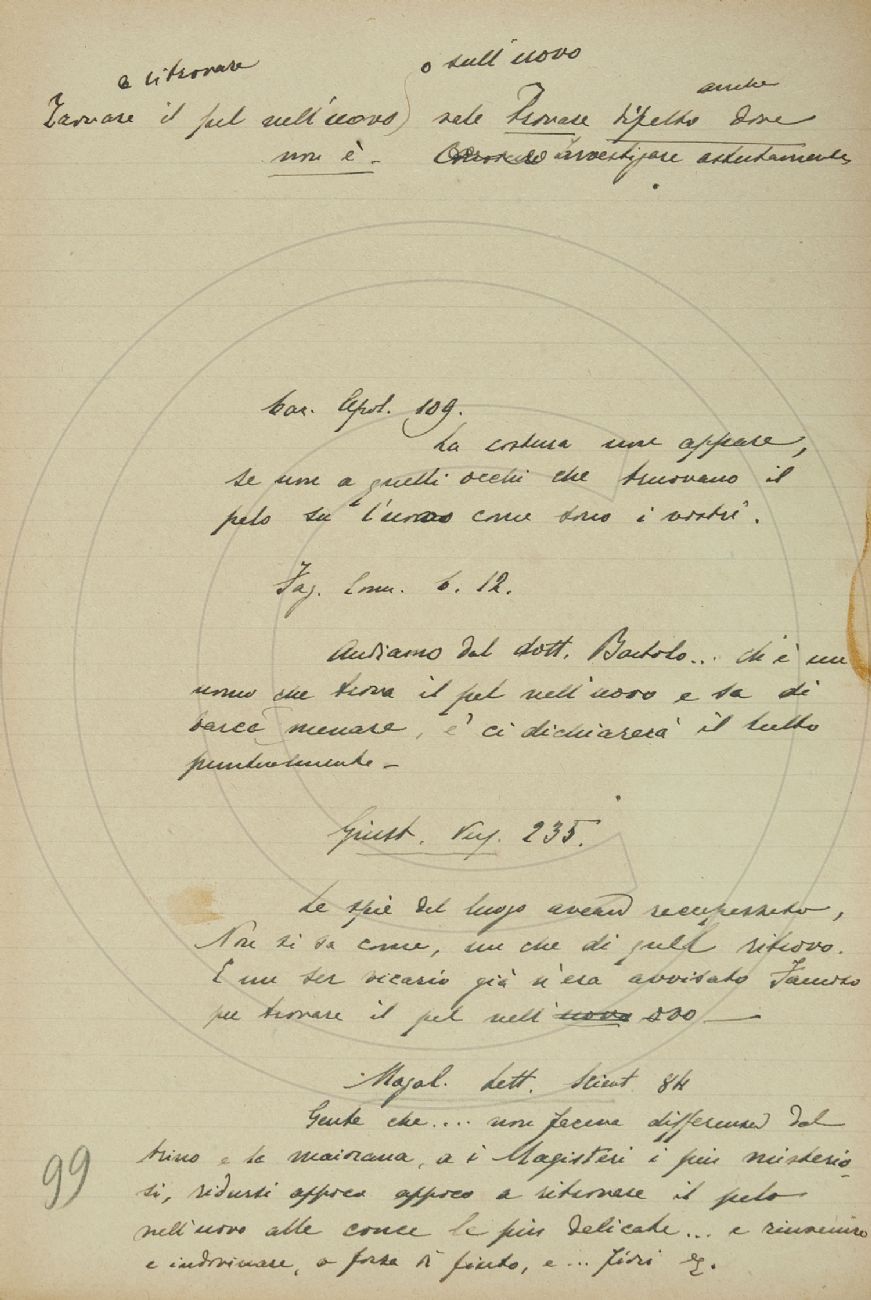 o ritrovare
o sull'uovo
anche
Trovare il pel nell'uovo) vale trovare difetto dove
non è - investigare astutamente
Car. Apol. 109.
La costura non appare,
se non a quelli occhi che truovano il
pelo su l'uovo come sono i vostri.
Fag. Com. 6. 12.
Andiamo dal dott. Bartolo... ch'è un
uomo che trova il pel nell'uovo e sa di
barca menare, e ci dichiarerà il tutto
puntualmente -
Giust. Vers. 235.
Le spie del luogo avean
Non si sa come, un che di quel ritrovo.
E un ser vicario già n'era avvisato Famoso
per trovare il pel nell'uovo ovo —
Magal. Lett. Scient. 84
Gente che .... non faceva differenza dal
timo e la maiorana, a i Magisteri i più misterio-
si, ridursi appoco appoco a ritrovare il pelo
nell'uovo alle conce le più delicate... e rinvenire
e indovinare, a forza di fiuto, e ... fiori
99